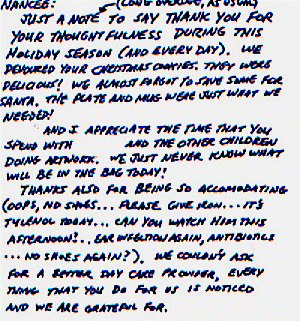 NANCEE: (LONG OVERDUE, AS USUAL)
JUST A NOTE TO SAY THANK YOU FOR
YOUR THOUGHTFULNESS DURING THIS
HOLIDAY SEASON (AND EVERY DAY). WE
DEVOURED YOUR CHRISTMAS COOKIES. THEY WERE
DELICIOUS! WE ALMOST FORGOT TO SAVE SOME FOR
SANTA. THE PLATE AND MUG WERE JUST WHAT WE
NEEDED!
AND I APPRECIATE THE TIME THAT YOU
SPEND WITH AND THE OTHER CHILDREN
DOING ARTWORK. WE JUST NEVER KNOW WHAT
WILL BE IN THE BAG TODAY!
THANKS ALSO FOR BEING SO ACCOMODATING
(OOPS, NO SHOES... PLEASE GIVE HIM... IT'S
TYLENOL TODAY... CAN YOU WATCH HIM THIS
AFTERNOON?.. EAR INFECTION AGAIN, ANTIBIOTICS
... NO SHOES AGAIN?). WE COULDN'T ASK
FOR A BETTER DAY CARE PROVIDER, EVERY
THING THAT YOU DO FOR US IS NOTICED
AND WE ARE GRATEFUL FOR.